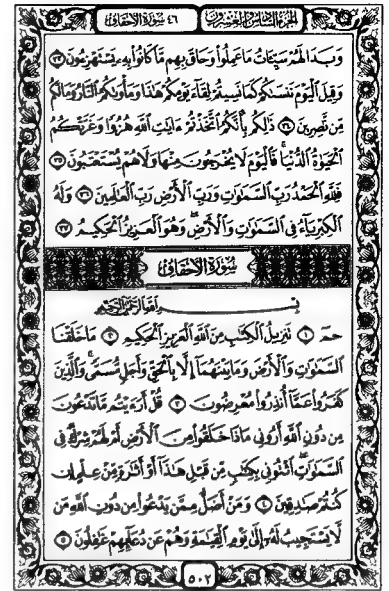 الجزء السادس والعشرون ٤٦ سورة الأحقاف
وَبَدَا لَهُمْ سَيِّـَٔاتُ مَا عَمِلُوا۟ وَحَاقَ بِهِم مَّا كَانُوا۟ بِهِۦ يَسْتَهْزِءُونَ ٣٣
وَقِيلَ ٱلْيَوْمَ نَنسَىٰكُمْ كَمَا نَسِيتُمْ لِقَآءَ يَوْمِكُمْ هَٰذَا وَمَأْوَىٰكُمُ ٱلنَّارُ وَمَا لَكُم
مِّن نَّٰصِرِينَ ٣٤ ذَٰلِكُم بِأَنَّكُمُ ٱتَّخَذْتُمْ ءَايَٰتِ ٱللَّهِ هُزُوًا وَغَرَّتْكُمُ
ٱلْحَيَوٰةُ ٱلدُّنْيَا ۚ فَٱلْيَوْمَ لَا يُخْرَجُونَ مِنْهَا وَلَا هُمْ يُسْتَعْتَبُونَ ٣٥
فَلِلَّهِ ٱلْحَمْدُ رَبِّ ٱلسَّمَٰوَٰتِ وَرَبِّ ٱلْأَرْضِ رَبِّ ٱلْعَٰلَمِينَ ٣٦ وَلَهُ
ٱلْكِبْرِيَآءُ فِى ٱلسَّمَٰوَٰتِ وَٱلْأَرْضِ ۖ وَهُوَ ٱلْعَزِيزُ ٱلْحَكِيمُ ٣٧
سُورَةُ الأَحْقَافِ
بِسْمِ ٱللَّهِ ٱلرَّحْمَٰنِ ٱلرَّحِيمِ
حمٓ ١ تَنزِيلُ ٱلْكِتَٰبِ مِنَ ٱللَّهِ ٱلْعَزِيزِ ٱلْحَكِيمِ ٢ مَا خَلَقْنَا
ٱلسَّمَٰوَٰتِ وَٱلْأَرْضَ وَمَا بَيْنَهُمَآ إِلَّا بِٱلْحَقِّ وَأَجَلٍ مُّسَمًّى ۚ وَٱلَّذِينَ
كَفَرُوا۟ عَمَّآ أُنذِرُوا۟ مُعْرِضُونَ ٣ قُلْ أَرَءَيْتُم مَّا تَدْعُونَ
مِن دُونِ ٱللَّهِ أَرُونِى مَاذَا خَلَقُوا۟ مِنَ ٱلْأَرْضِ أَمْ لَهُمْ شِرْكٌ فِى
ٱلسَّمَٰوَٰتِ ۖ ٱئْتُونِى بِكِتَٰبٍ مِّن قَبْلِ هَٰذَآ أَوْ أَثَٰرَةٍ مِّنْ عِلْمٍ إِن
كُنتُمْ صَٰدِقِينَ ٤ وَمَنْ أَضَلُّ مِمَّن يَدْعُوا۟ مِن دُونِ ٱللَّهِ مَن
لَّا يَسْتَجِيبُ لَهُۥٓ إِلَىٰ يَوْمِ ٱلْقِيَٰمَةِ وَهُمْ عَن دُعَآئِهِمْ غَٰفِلُونَ ٥
٥٠٢